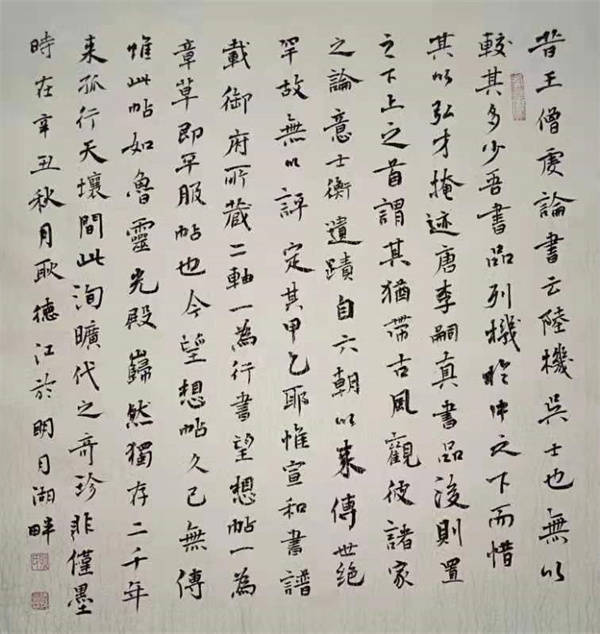 昔王僧虔論書云陸機吳士也無以
較其多少吾書品列機於中之下而惜
其以弘才掩迹唐李嗣真書品後則置
之下上之首謂其猶帶古風觀彼諸家
之論意士衡遺蹟自六朝以來傳世絶
罕故無以評定其甲乙耶惟宣和書譜
載御府所藏二軸一為行書望想帖一為
章草即平服帖也今望想帖久已無傳
惟此帖如魯靈光殿巋然獨存二千年
来孤行天壤間此洵曠代之奇珍非僅墨
時在辛丑秋月耿德江於明月湖畔